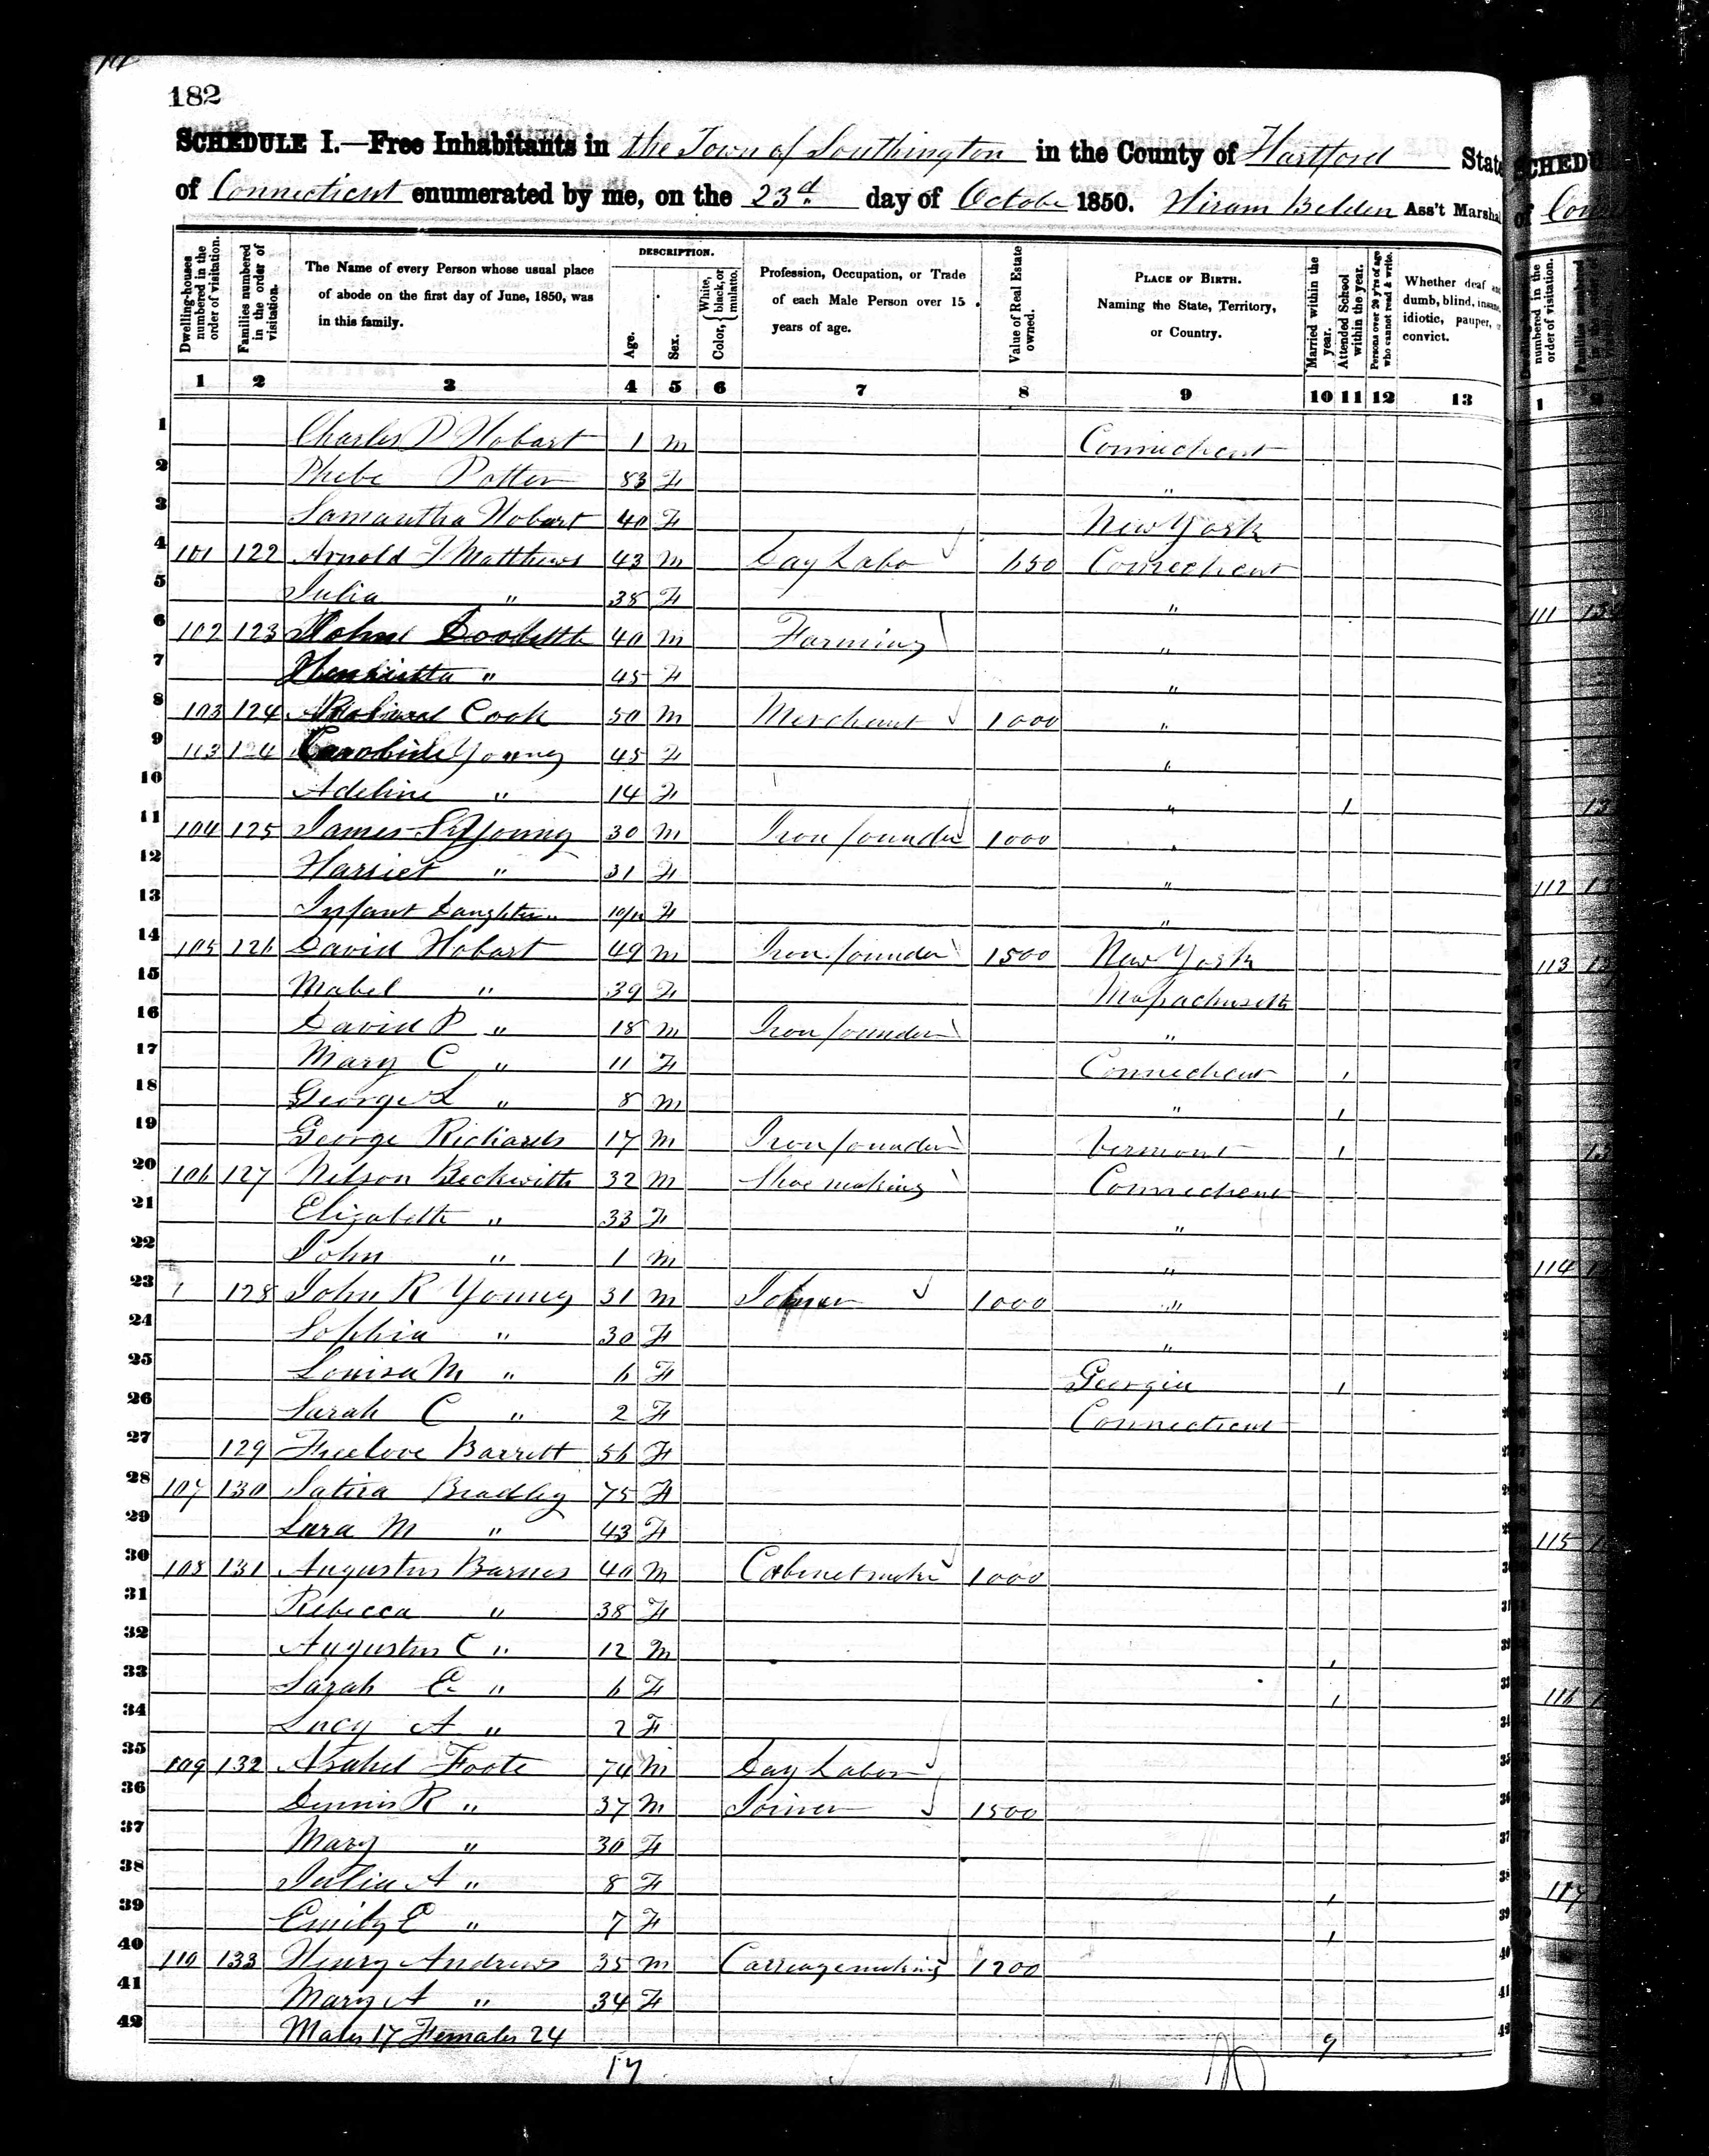 182
SCHEDULE I.—Free Inhabitants in the Town of Southington in the County of Hartford State
of Connecticut enumerated by me, on the 23d. day of October 1850. Hiram Belden Ass't Marshal
Dwelling-houses numbered in the order of visitation.
Families numbered in the order of visitation.
The Name of every Person whose usual place of abode on the first day of June, 1850, was in this family.
DESCRIPTION.
Age.
Sex.
Color, { White, black, or mulatto.
Profession, Occupation, or Trade of each Male Person over 15 years of age.
Value of Real Estate owned.
PLACE OF BIRTH. Naming the State, Territory, or Country.
Married within the year.
Attended School within the year.
Persons over 20 y'rs of age who cannot read & write.
Whether deaf and dumb, blind, insane, idiotic, pauper, or convict.
1 2 3 4 5 6 7 8 9 10 11 12 13
1 Charles P Hobart 1 M Connecticut
2 Phebe Potter 83 F "
3 Samantha Hobart 40 F New York
4 101 122 Arnold Matthews 43 M Day Labo 650 Connecticut
5 Julia " 38 F "
6 102 123 John 40 M Farming "
7 Henrietta " 45 F "
8 103 124 Cook 50 M Merchant 1000 "
9 113 124 Caroline Young 45 F "
10 Adeline " 14 F " 1
11 104 125 James Young 30 M Iron founder 1000 "
12 Harriet " 31 F "
13 Infant Daughter " 10/12 F "
14 105 126 David Hobart 49 M Iron founder 1500 New York
15 Mabel " 39 F Massachusetts
16 David P " 18 M Iron founder "
17 Mary C " 11 F Connecticut 1
18 George L " 8 M " 1
19 George Richards 17 M Iron founder Vermont 1
20 106 127 Nelson Beckwith 32 M Shoe making Connecticut
21 Elizabeth " 33 F "
22 John " 1 M "
23 1 128 John R Young 31 M Joiner 1000 "
24 Sophia " 30 F "
25 Louisa M " 6 F Georgia 1
26 Sarah C " 2 F Connecticut
27 129 Freelove Barrett 56 F
28 107 130 Satira Bradley 75 F
29 Lura M " 43 F
30 108 131 Augustus Barnes 40 M Cabinetmaker 1000
31 Rebecca " 38 F
32 Augustus C " 12 M 1
33 Sarah E " 6 F 1
34 Lucy A " 2 F
35 109 132 Asahel Foote 74 M Day Labor
36 Dennis R " 37 M Joiner 1500
37 Mary " 30 F
38 Julia A " 8 F 1
39 Emily E " 7 F 1
40 110 133 Henry Andrews 35 M Carriagemaking 1200
41 Mary A " 34 F
42 Males 17 Females 24 9
17